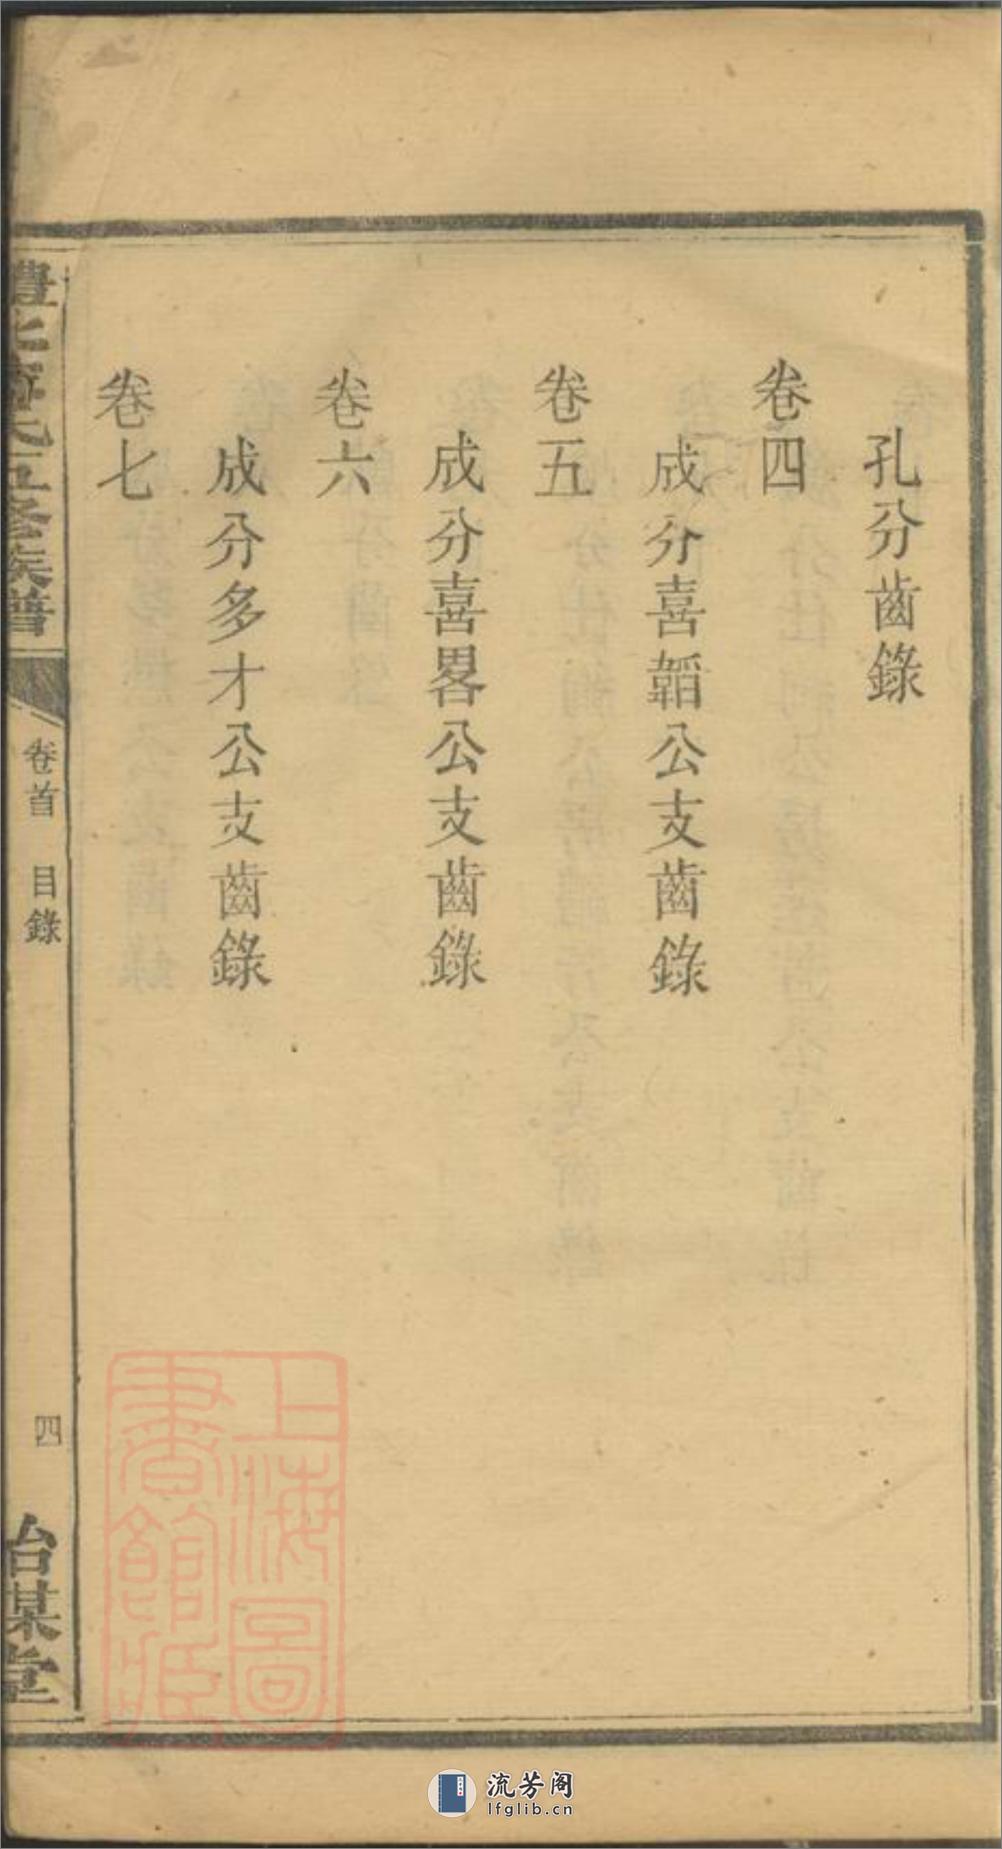 孔分齒錄
卷四
成分喜韜公支齒錄
卷五
成分喜畧公支齒錄
卷六
成分多才公支齒錄
卷七
氏五修族譜
卷首 目錄
四
堂
上海圖書館藏
流芳阁
lfglib.cn